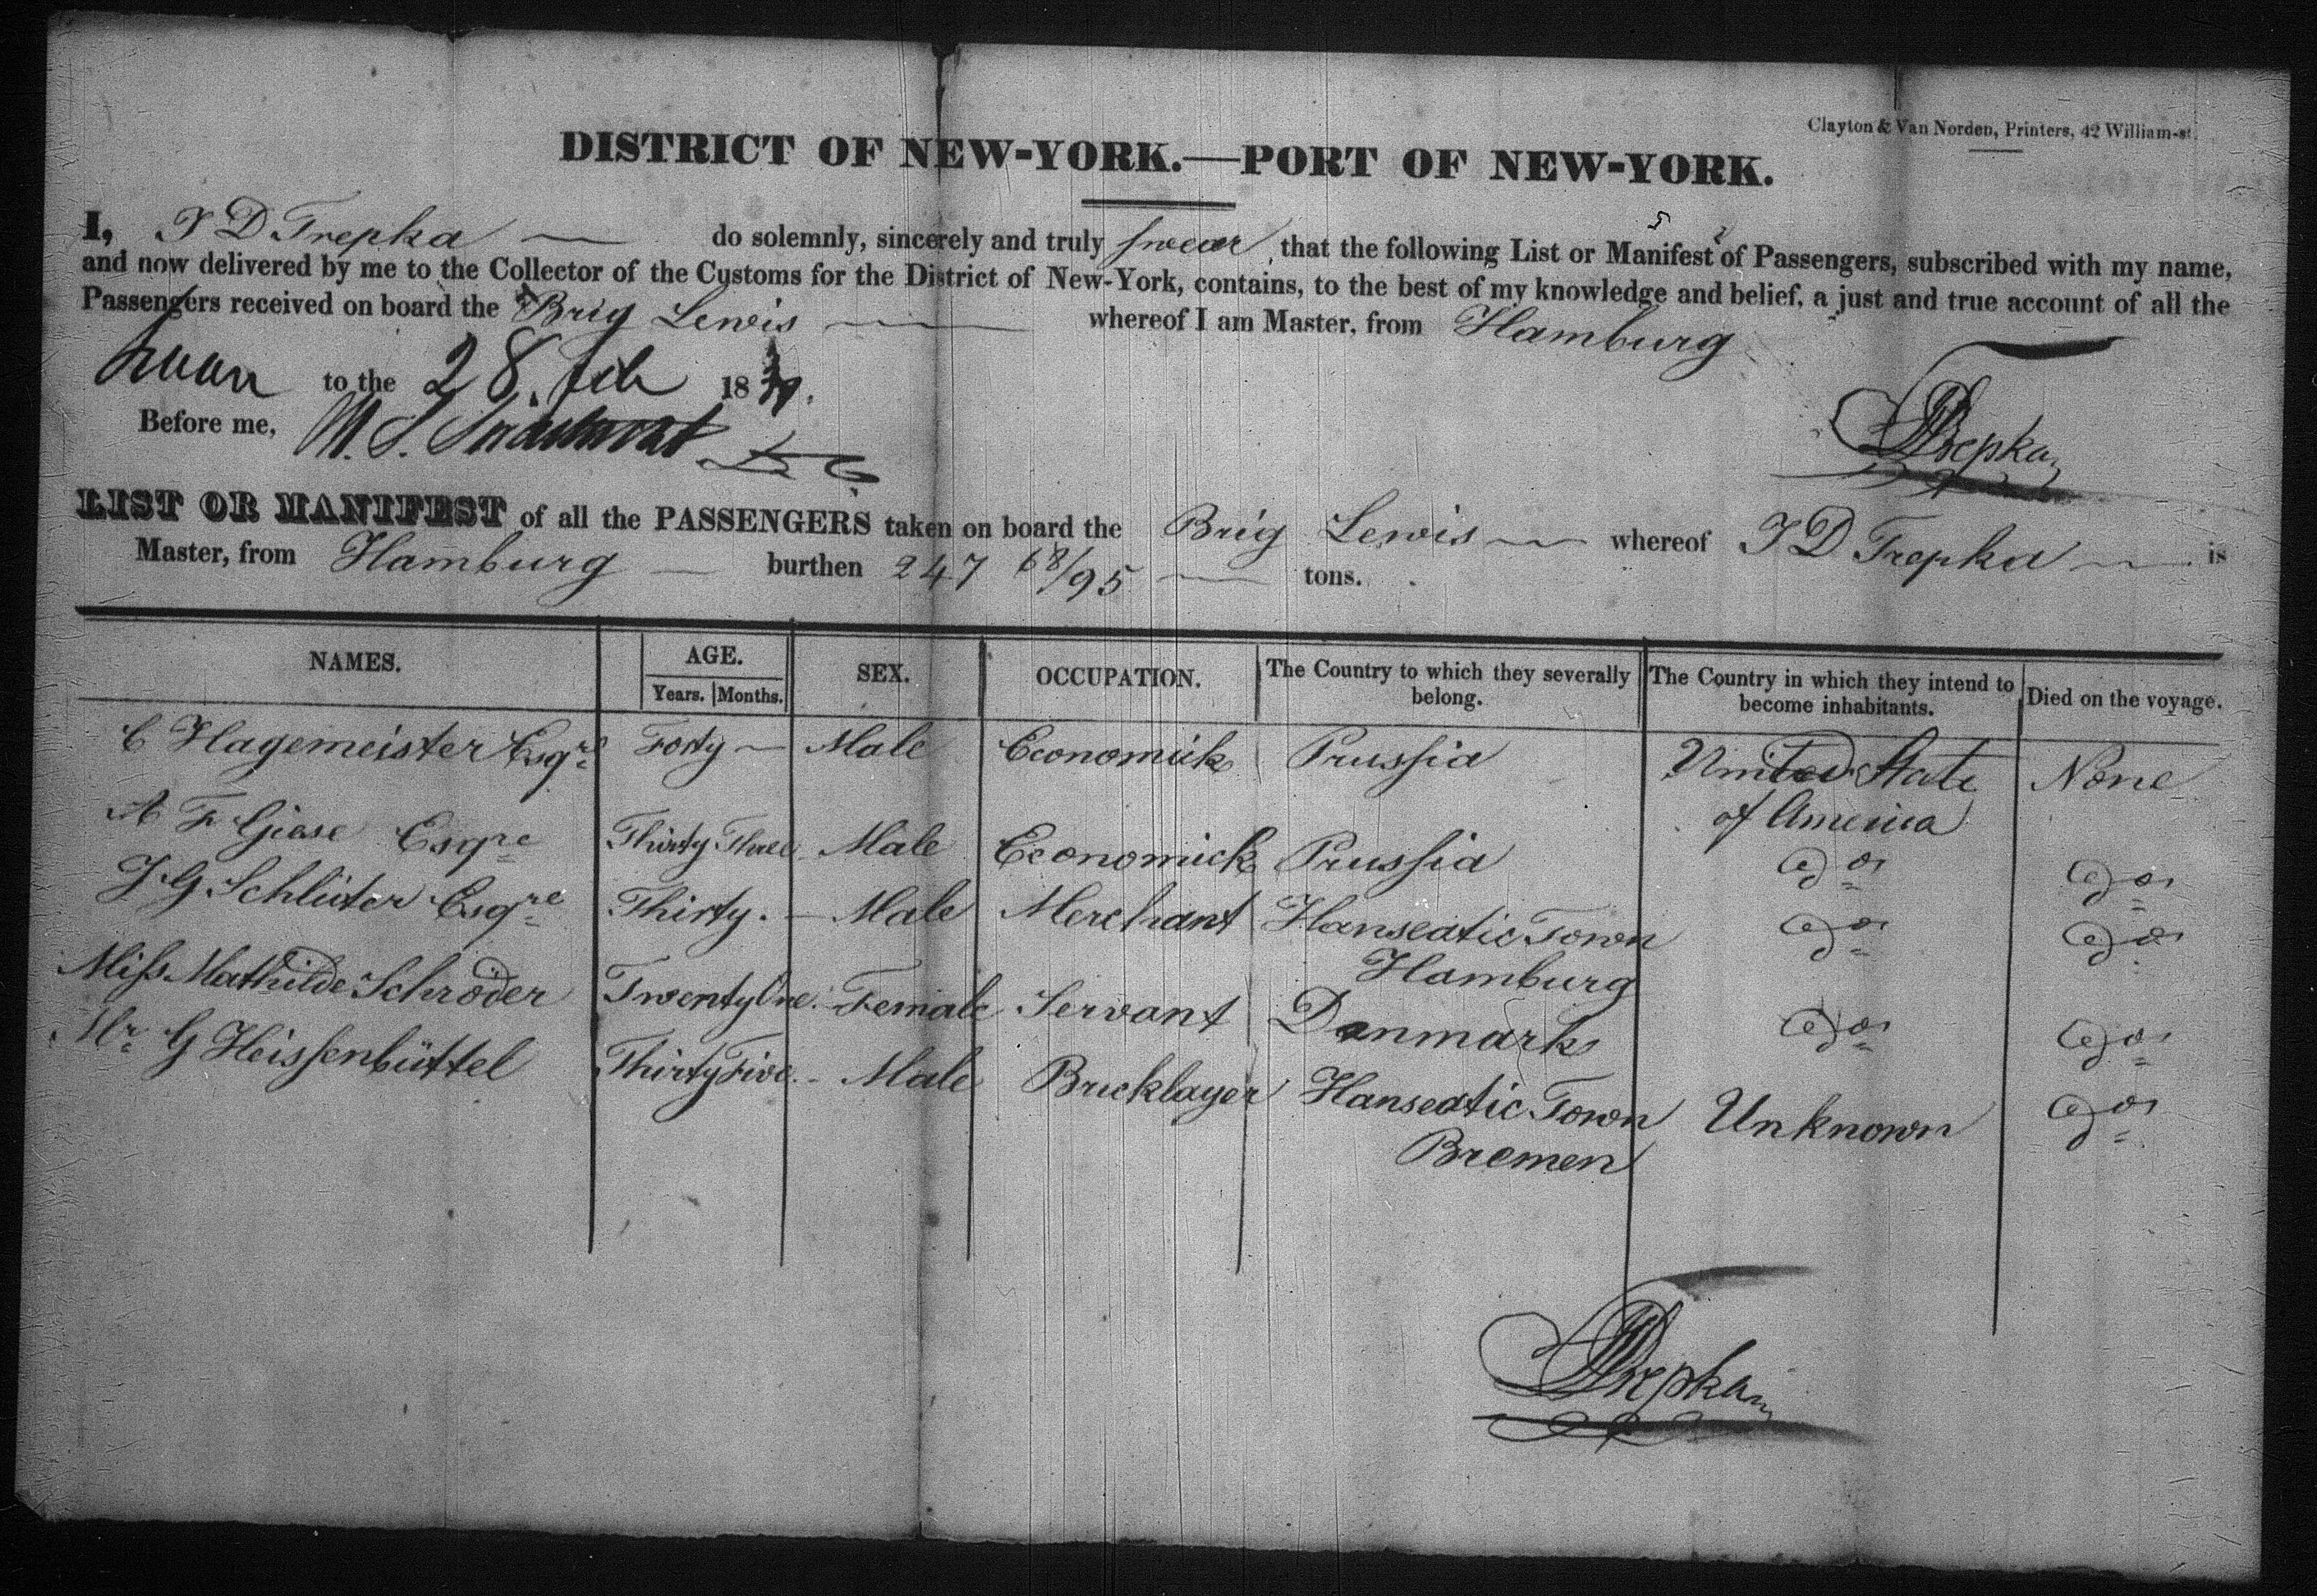 Clayton & Van Norden, Printers, 42 William-st.
DISTRICT OF NEW-YORK.—PORT OF NEW-YORK.
I, J D Trepka do solemnly, sincerely and truly swear, that the following List or Manifest of Passengers, subscribed with my name,
and now delivered by me to the Collector of the Customs for the District of New-York, contains, to the best of my knowledge and belief, a just and true account of all the
Passengers received on board the Brig Lewis whereof I am Master, from Hamburg
Sworn to the 28 Feb 18
Before me,
JD Trepka
LIST OR MANIFEST of all the PASSENGERS taken on board the Brig Lewis whereof J D Trepka is
Master, from Hamburg burthen 247 68/95 tons.
NAMES. AGE. Years. Months. SEX. OCCUPATION. The Country to which they severally belong. The Country in which they intend to become inhabitants. Died on the voyage.
C Hagemeister Esqre Forty Male Economick Prussia United State of America None
A F Giese Esqre Thirty Three Male Economick Prussia do do
J G Schlüter Esqre Thirty. Male Merchant Hanseatic Town Hamburg do do
Miss Mathilde Schröder Twenty One Female Servant Denmark do do
Mr G Heissenbüttel Thirty Five Male Bricklayer Hanseatic Town Bremen Unknown do
JD Trepka